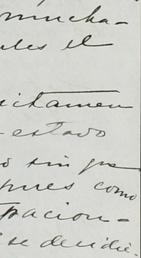 mucha-
ales el
ictamen
estado
o sin que
pues como
pacion-
se decidie-